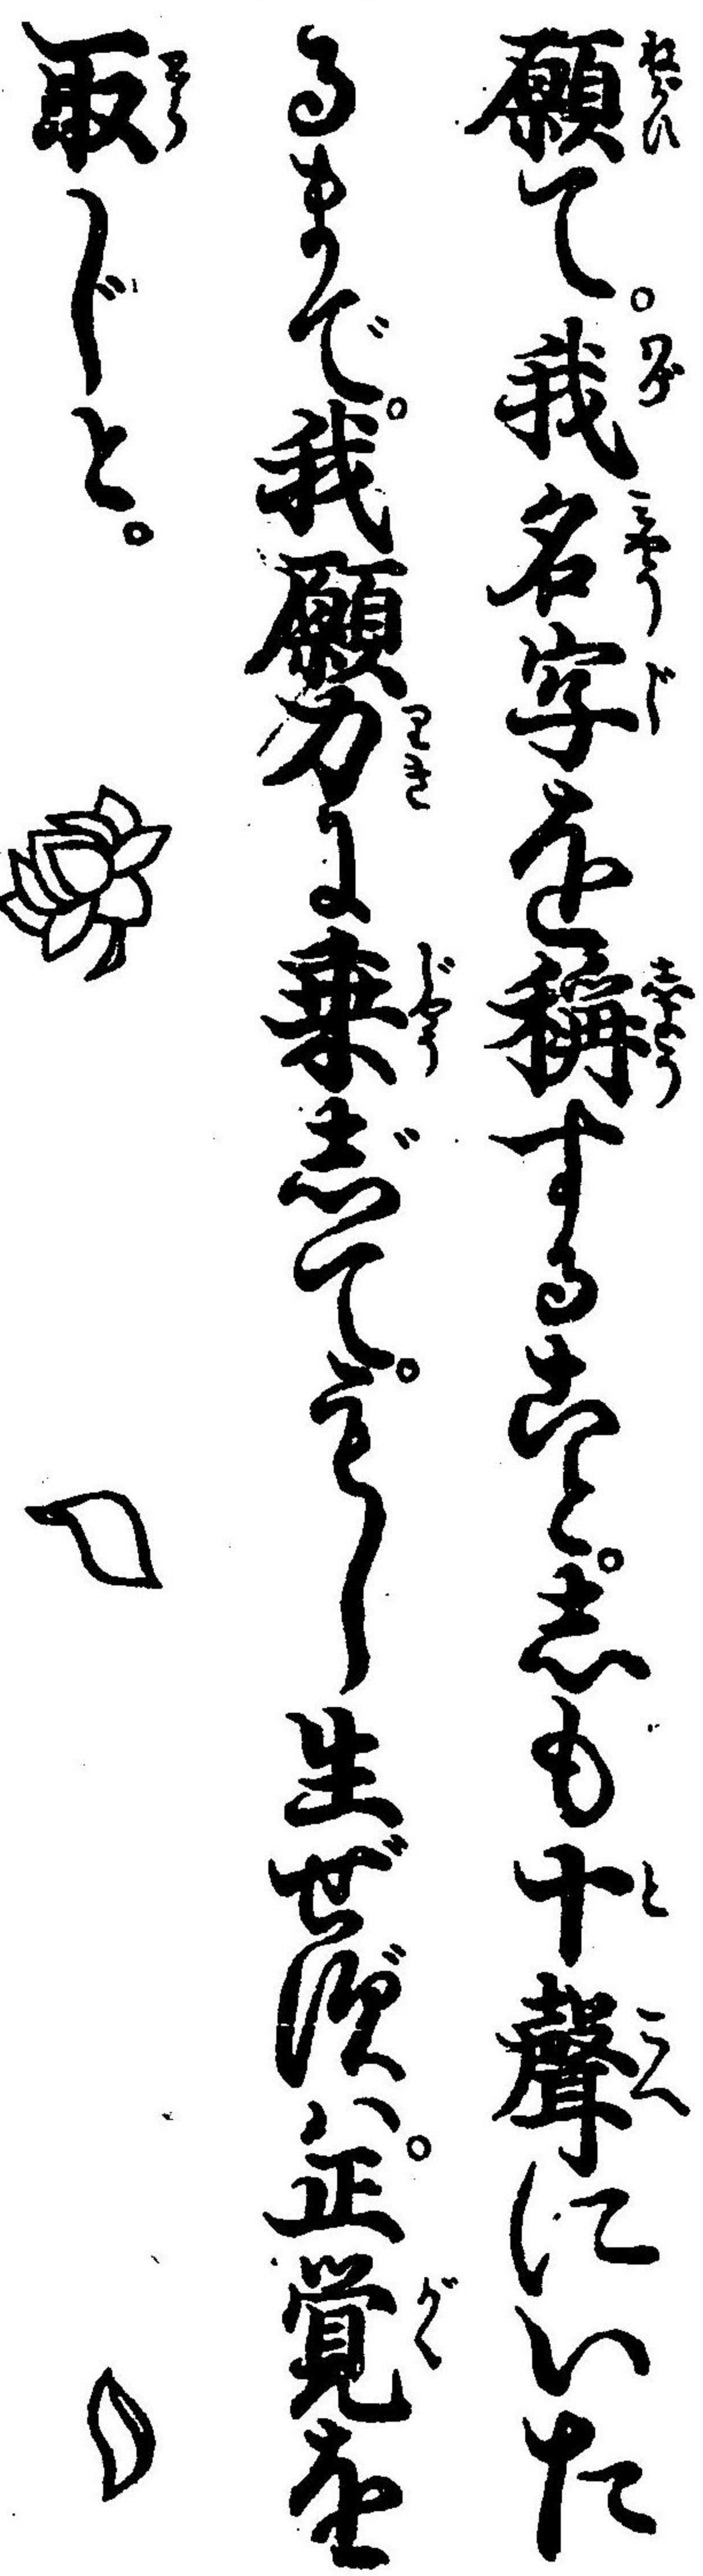 願て。我名字を稱すること。志も十聲にいた
るまで。我願力に乗志゛て。もし生ぜずハ。正覚を
取じと。